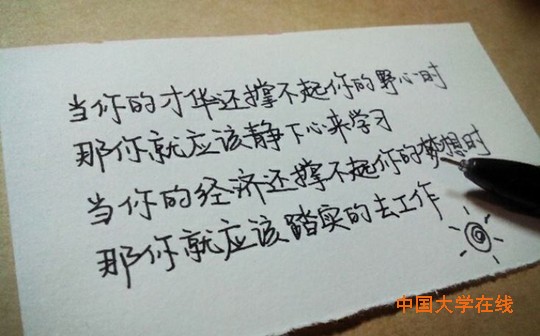 当你的才华还撑不起你的野心时
那你就应该静下心来学习
当你的经济还撑不起你的梦想时
那你就应该踏实的去工作
中国大学在线